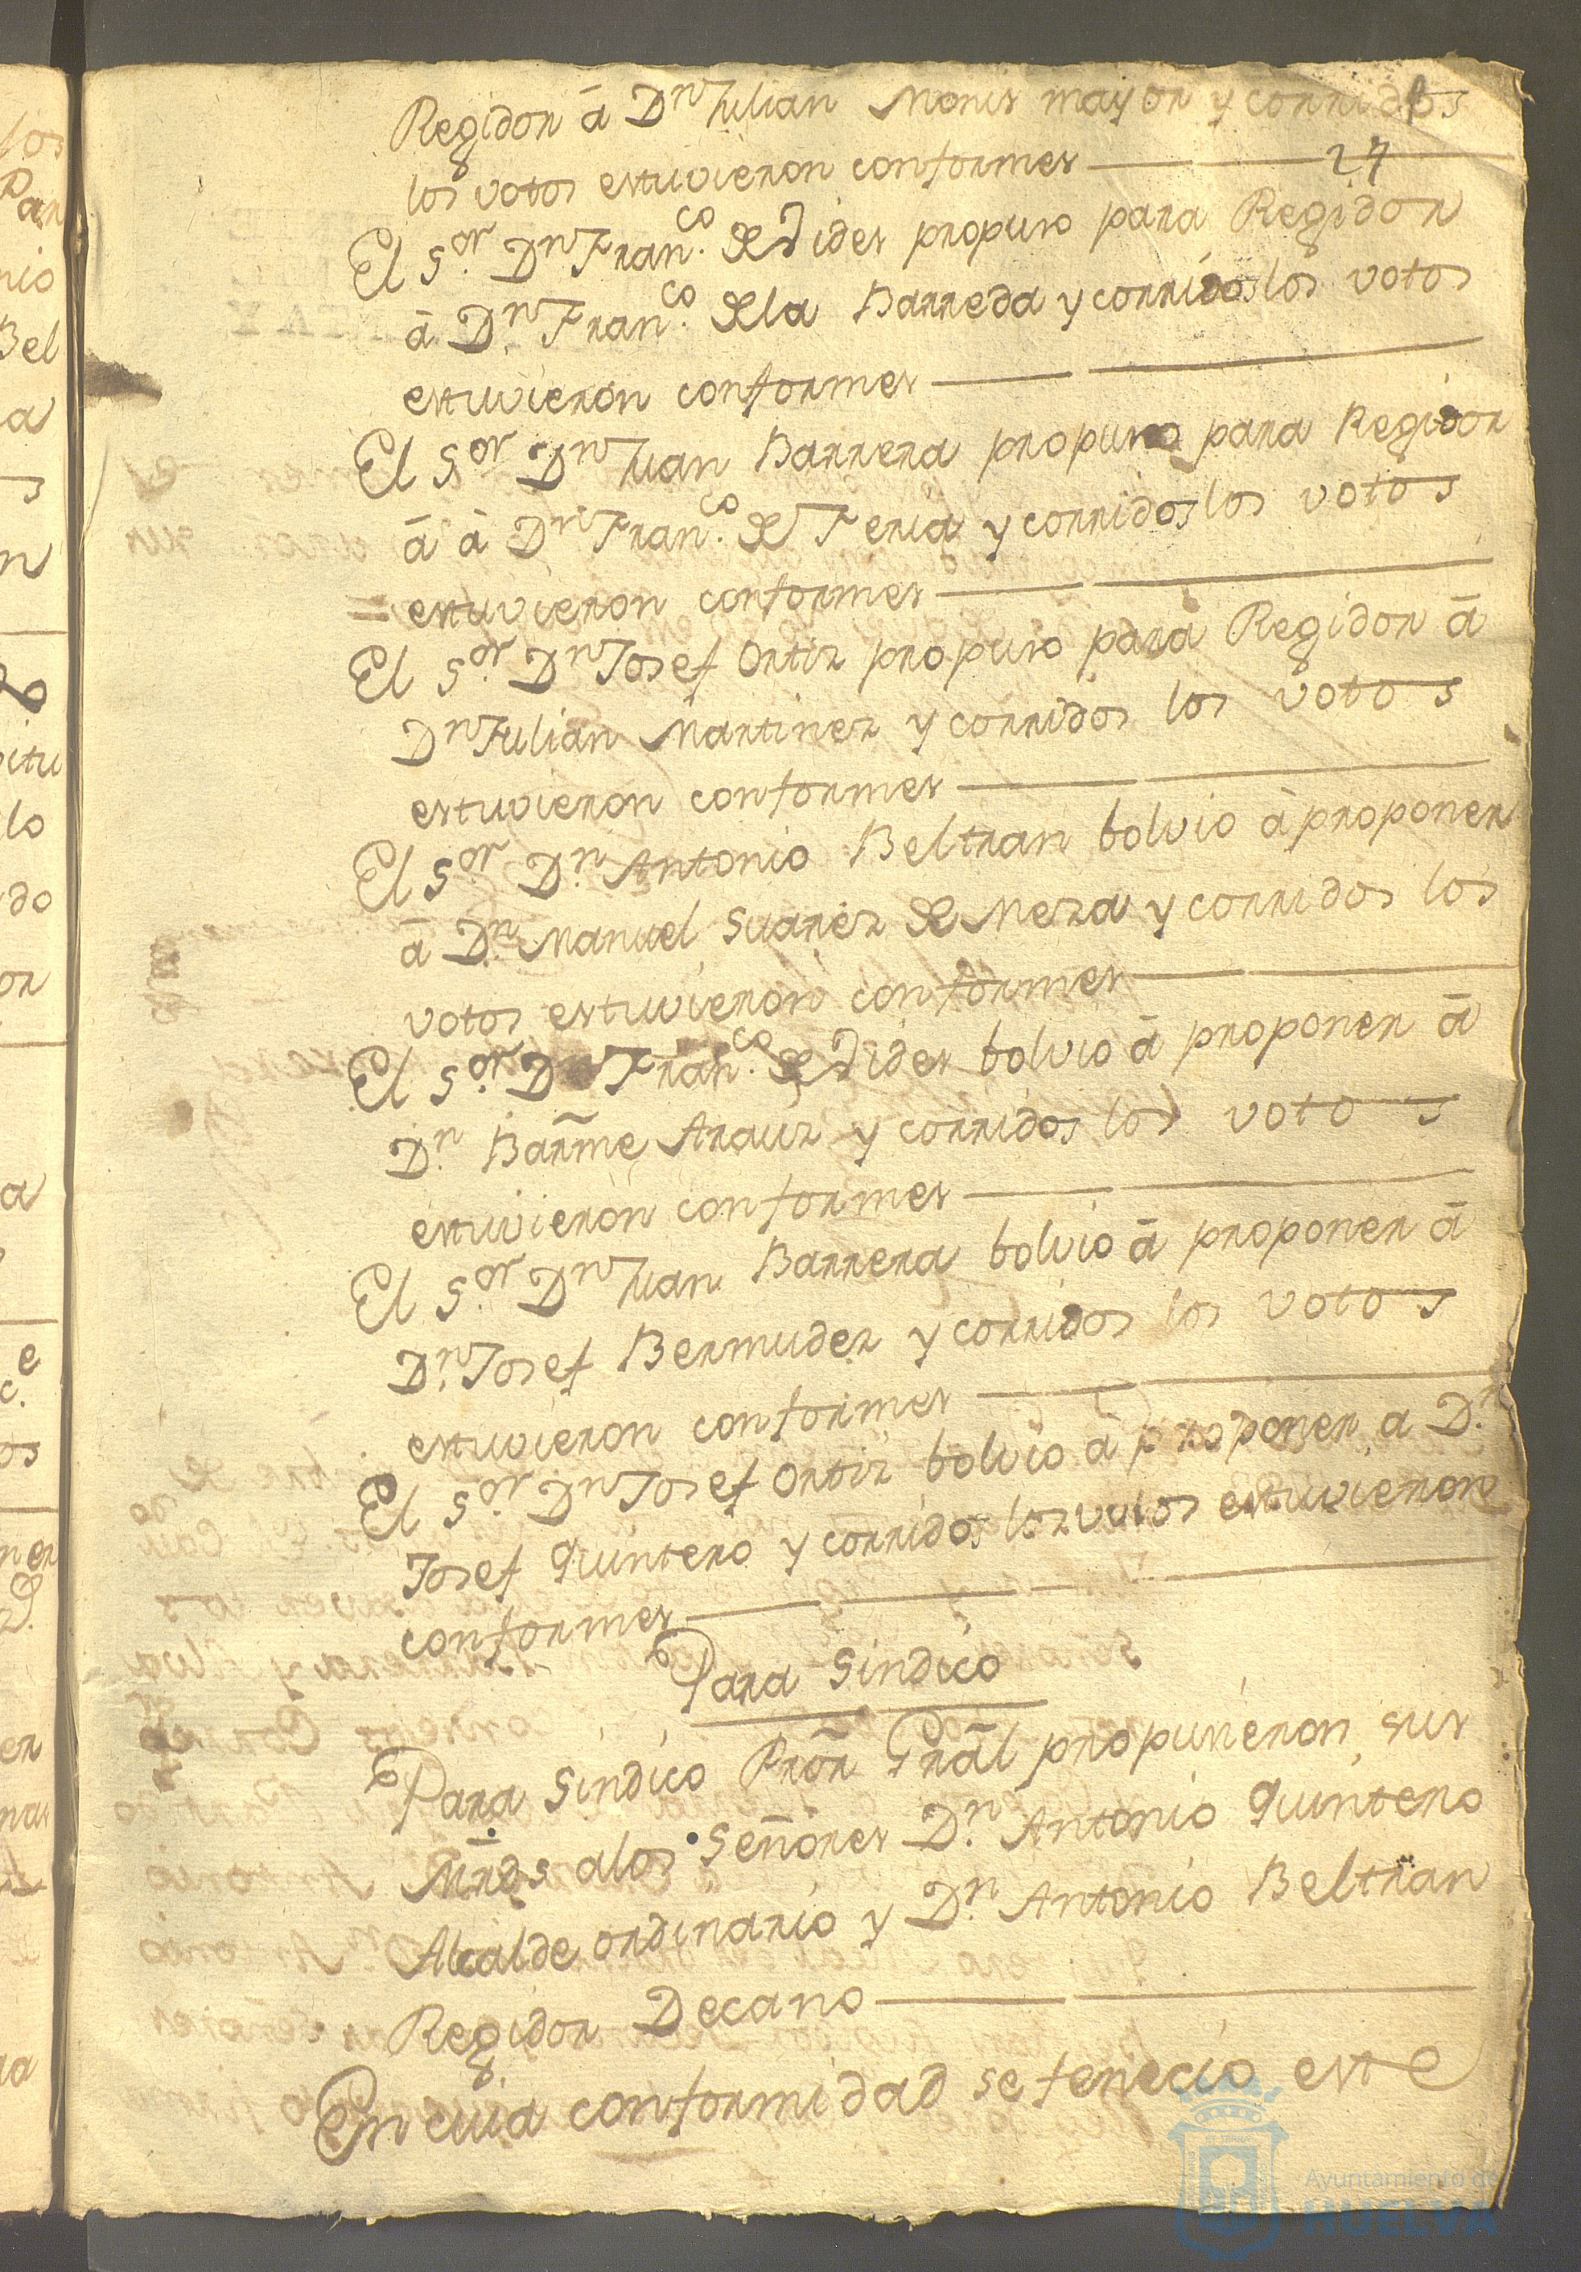 Regidor â Dn Julian Moris mayor y corridos
los votos estuvieron conformes
27
El Sor. Dn Franco. de Fides propuso para Regidor
â Dn. Franco. dela Barreda y corridos los votos
estuvieron conformes
El Sor Dn Juan Barrera propuso para Regidor
â â Dn Franco. de Feria y corridos los votos
estuvieron conformes
El Sor. Dn Josef Ortiz propuso para Regidor â
Dn Julian Martinez y corridos los votos
estuvieron conformes
El Sor Dn. Antonio Beltran bolvio â proponer
â Dn. Manuel Suarez de Meza y corridos los
votos estuvieron conformes
El Sor. Dn Franco. de Fides bolvio â proponer â
Dn. Barme Arauz y corridos los votos
estuvieron conformes
El Sor. Dn Juan Barrera bolvio â proponer â
Dn. Josef Bermudez y corridos los votos
estuvieron conformes
El Sor. Dn Josef Ortiz bolvio â proponer a D.n
Josef Quintero y corridos los votos estuvieron
conformes
Para Sindico
Para Sindico Pror Gral propusieron sus
Mrds alos Señores Dn. Antonio Quintero
Alcalde ordinario y Dn. Antonio Beltran
Regidor Decano
En cuia conformidad se fenecio este
Ayuntamiento de
HUELVA